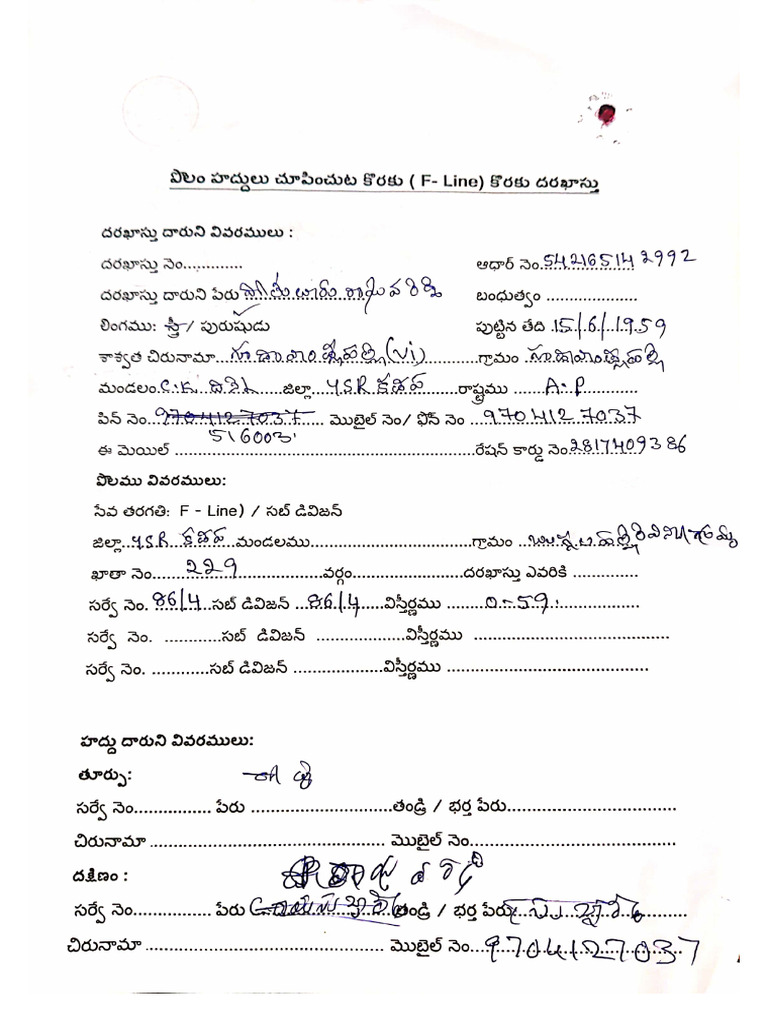 పొలం హద్దులు చూపించుట కొరకు ( F- Line) కొరకు దరఖాస్తు
దరఖాస్తు దారుని వివరములు :
దరఖాస్తు నెం............. ఆధార్ నెం.542165143992
దరఖాస్తు దారుని పేరు బంధుత్వం ....................
లింగము: స్త్రీ / పురుషుడు పుట్టిన తేది 15/6/1959
శాశ్వత చిరునామా (vi) గ్రామం
మండలం C.K. దిన్నె జిల్లా YSR కడప రాష్ట్రము A.P
పిన్ నెం. 9704127037 మొబైల్ నెం/ ఫోన్ నెం 9704127037
516003
ఈ మెయిల్ ............ రేషన్ కార్డు నెం 2817409386
పొలము వివరములు:
సేవ తరగతి: F - Line) / సబ్ డివిజన్
జిల్లా YSR కడప మండలము............ గ్రామం
ఖాతా నెం. 229 వర్గం............ దరఖాస్తు ఎవరికి .............
సర్వే నెం. 86/4 సబ్ డివిజన్ 86/4 విస్తీర్ణము 0-59
సర్వే నెం. ............సబ్ డివిజన్ ..................విస్తీర్ణము ............
సర్వే నెం. ............సబ్ డివిజన్ ..................విస్తీర్ణము ............
హద్దు దారుని వివరములు:
తూర్పు:
సర్వే నెం................ పేరు ............తండ్రి / భర్త పేరు............
చిరునామా ............ మొబైల్ నెం............
దక్షిణం :
సర్వే నెం................ పేరు తండ్రి / భర్త పేరు
చిరునామా ............ మొబైల్ నెం. 9704127037